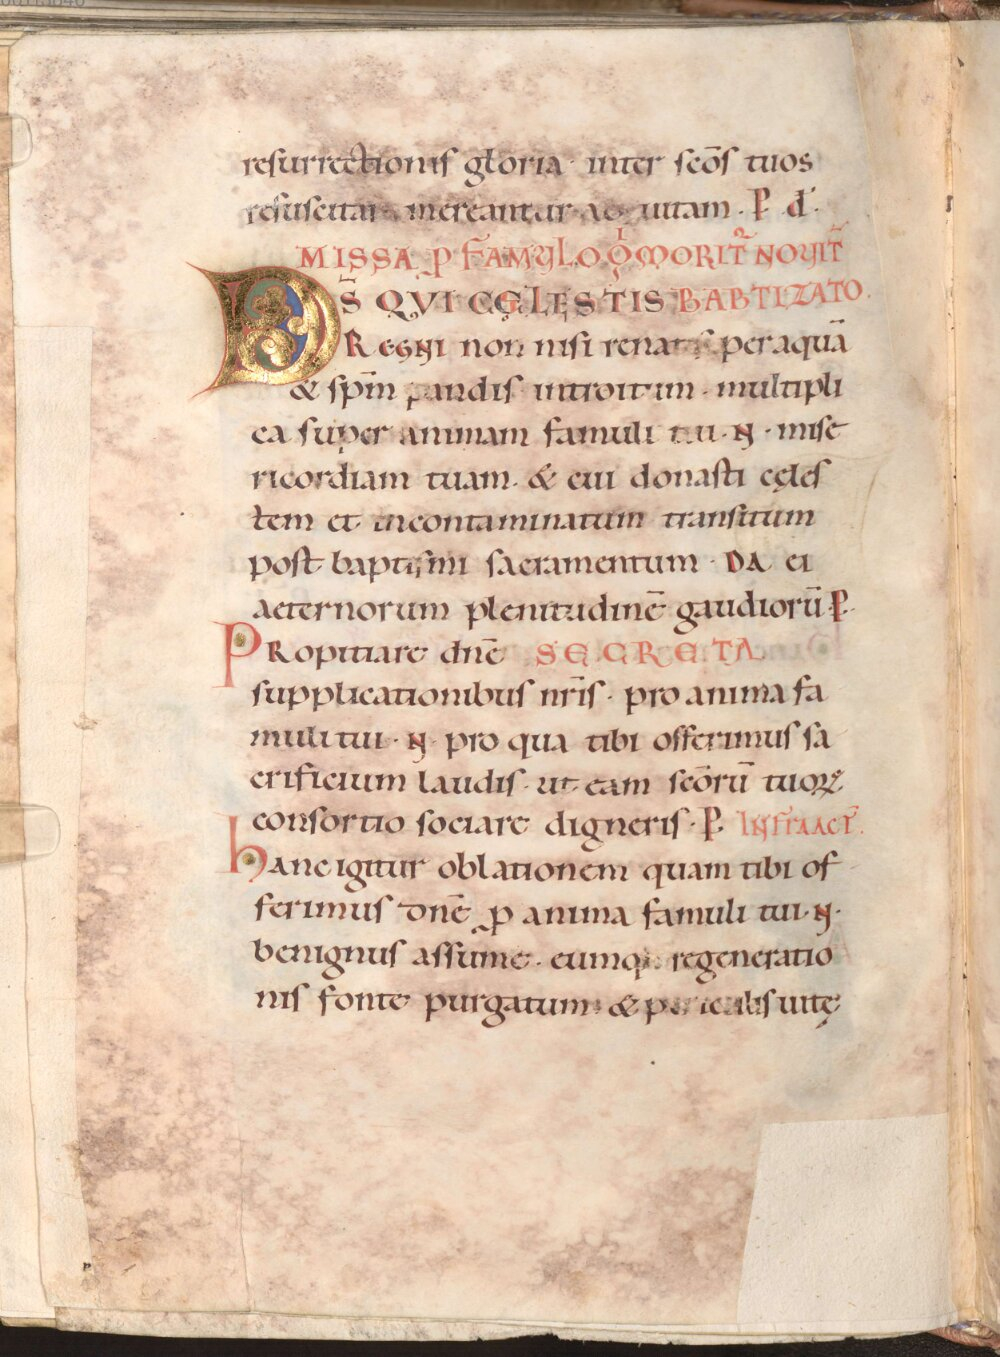 resurrectionis gloria · inter scōs tuos
resuscitari mereantur ad uitam · P d̄ ·
MISSA P FAMULO Q̇ MORITR̄ NOUIT̄
DS̄ QVI CĘLESTIS BABTIZATO ·
REGNI non nisi renatis per aquā
& sp̄m pandis introitum · multipli
ca super animam famuli tui · N · mise
ricordiam tuam · & cui donasti cęles
tem et incontaminatum transitum
post baptismi sacramentum · DA ei
aeternorum plenitudinē gaudiorū · P ·
PRopitiare dn̄e SECRETA
supplicationibus nr̄is · pro anima fa
muli tui · N · pro qua tibi offerimus sa
crificium laudis · ut eam scōrū tuoꝝ
consortio sociare digneris · P · INFRA ACT̄ ·
hanc igitur oblationem quam tibi of
ferimus dn̄e ꝓ anima famuli tui · N ·
benignus assume · eumq; regeneratio
nis fonte purgatum · & periculis uitę